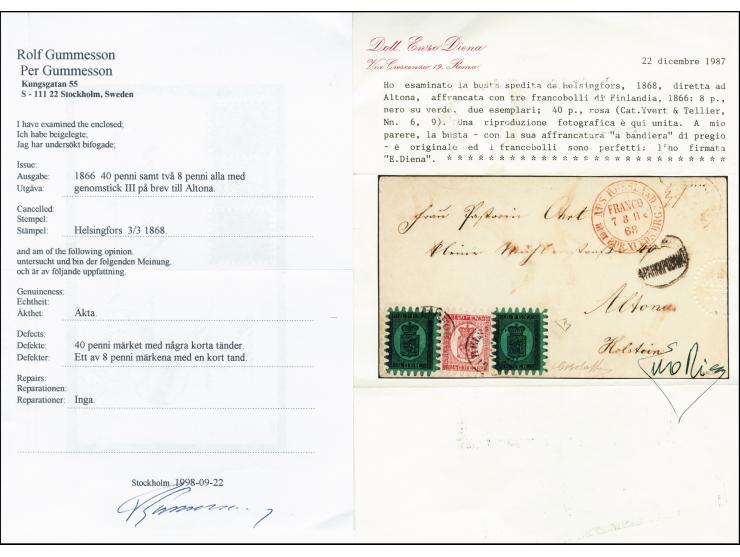 Rolf Gummesson
Per Gummesson
Kungsgatan 55
S - 111 22 Stockholm, Sweden
I have examined the enclosed;
Ich habe beigelegte;
Jag har undersökt bifogade;
Issue:
Ausgabe: 1866 40 penni samt två 8 penni alla med
Utgåva: genomstick III på brev till Altona.
Cancelled:
Stempel:
Stämpel: Helsingfors 3/3 1868.
and am of the following opinion.
untersucht und bin der folgenden Meinung.
och är av följande uppfattning.
Genuineness:
Echtheit:
Äkthet: Äkta.
Defects:
Defekte: 40 penni märket med några korta tänder.
Defekter: Ett av 8 penni märkena med en kort tand.
Repairs:
Reparationen:
Reparationer: Inga.
Stockholm 1998-09-22
Dott. Enzo Diena
Via Crescenzio 19, Roma
22 dicembre 1987
Ho esaminato la busta spedita da Helsingfors, 1868, diretta ad
Altona, affrancata con tre francobolli di Finlandia, 1866: 8 p.,
nero su verde, due esemplari; 40 p., rosa (Cat.Yvert & Tellier,
Nn. 6, 9). Una riproduzione fotografica è qui unita. A mio
parere, la busta - con la sua affrancatura "a bandiera" di pregio
- è originale ed i francobolli sono perfetti: l'ho firmata
"E.Diena". * * * * * * * * * * * * * * * * * * * * * * * * * * *
AUS RUSSLAND
FRANCO
68
Frau Pastorin Ohrt
kleine Mühlenstraße
Altona
Holstein